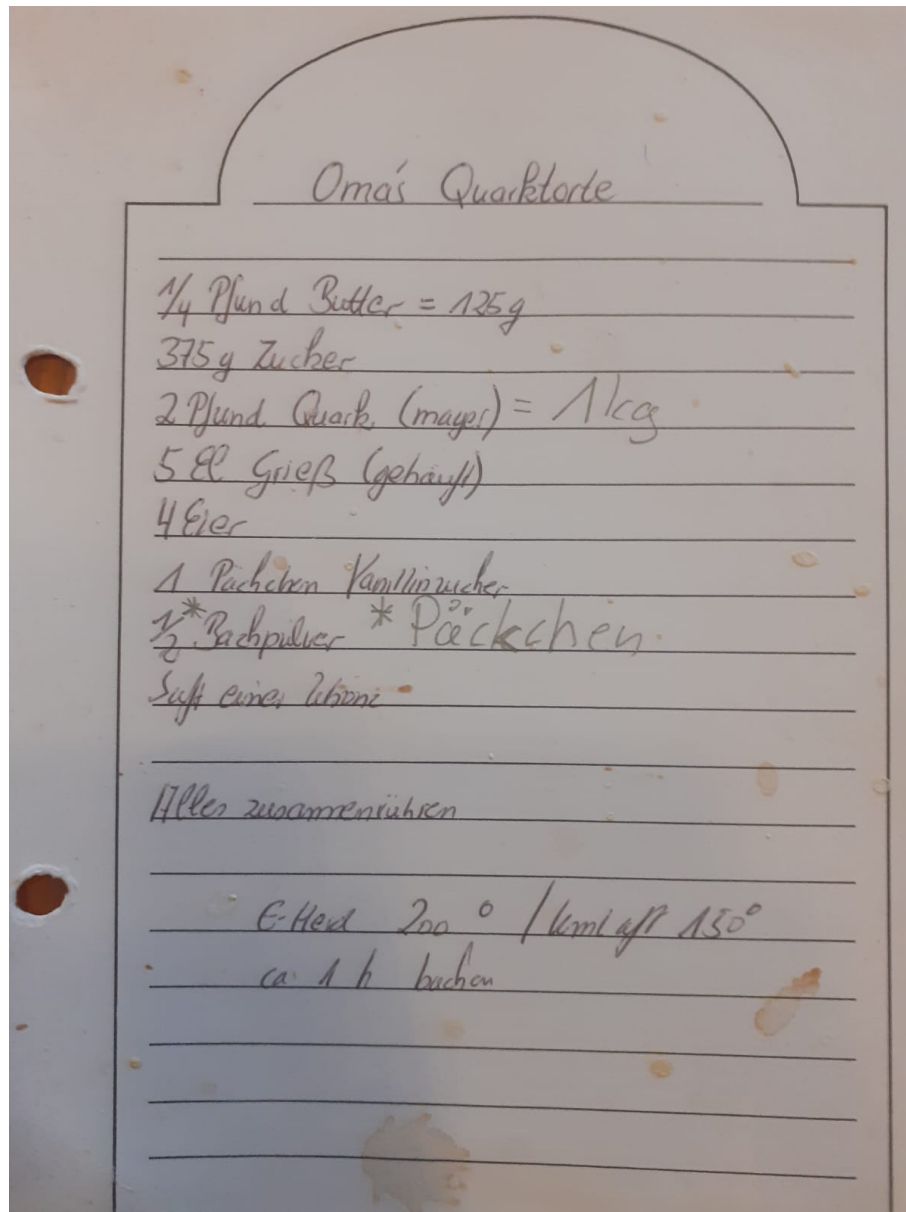 Oma's Quarktorte
1/4 Pfund Butter = 125g
375g Zucker
2 Pfund Quark (mager) = 1kg
5 El Grieß (gehäuft)
4 Eier
1 Päckchen Vanillinzucker
1/2 * Backpulver * Päckchen
Saft einer Zitrone
Alles zusammenrühren
E-Herd 200° / Umluft 150°
ca. 1 h backen